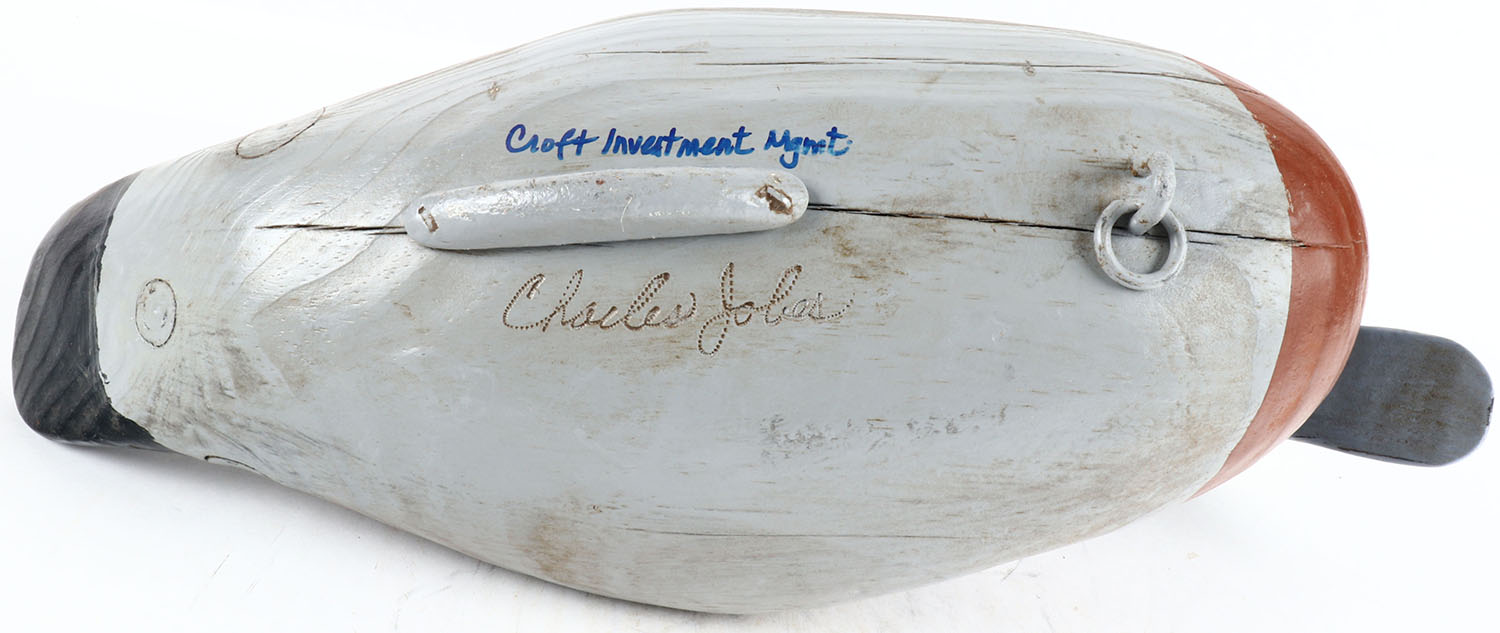 Croft Investment Mgmt.
Charles Jobes